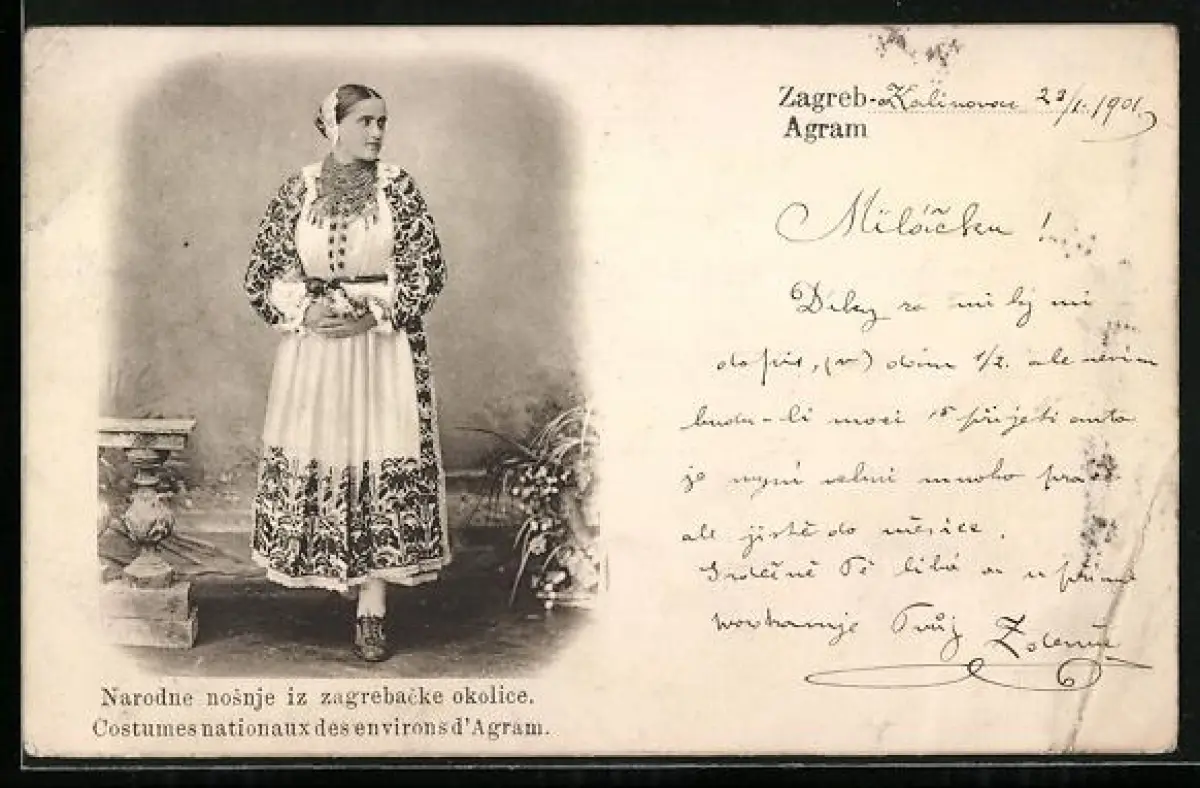 Zagreb-Kalinovac 23/1. 1901
Agram
Miláčku!
Díky za milý mi
dopis, dům 1/2. ale nevím
budu-li moci přijeti
je nyní velmi mnoho práce
ale jistě do měsíce.
Srdečně Tě líbá a
Tvůj
Narodne nošnje iz zagrebačke okolice.
Costumes nationaux des environs d'Agram.